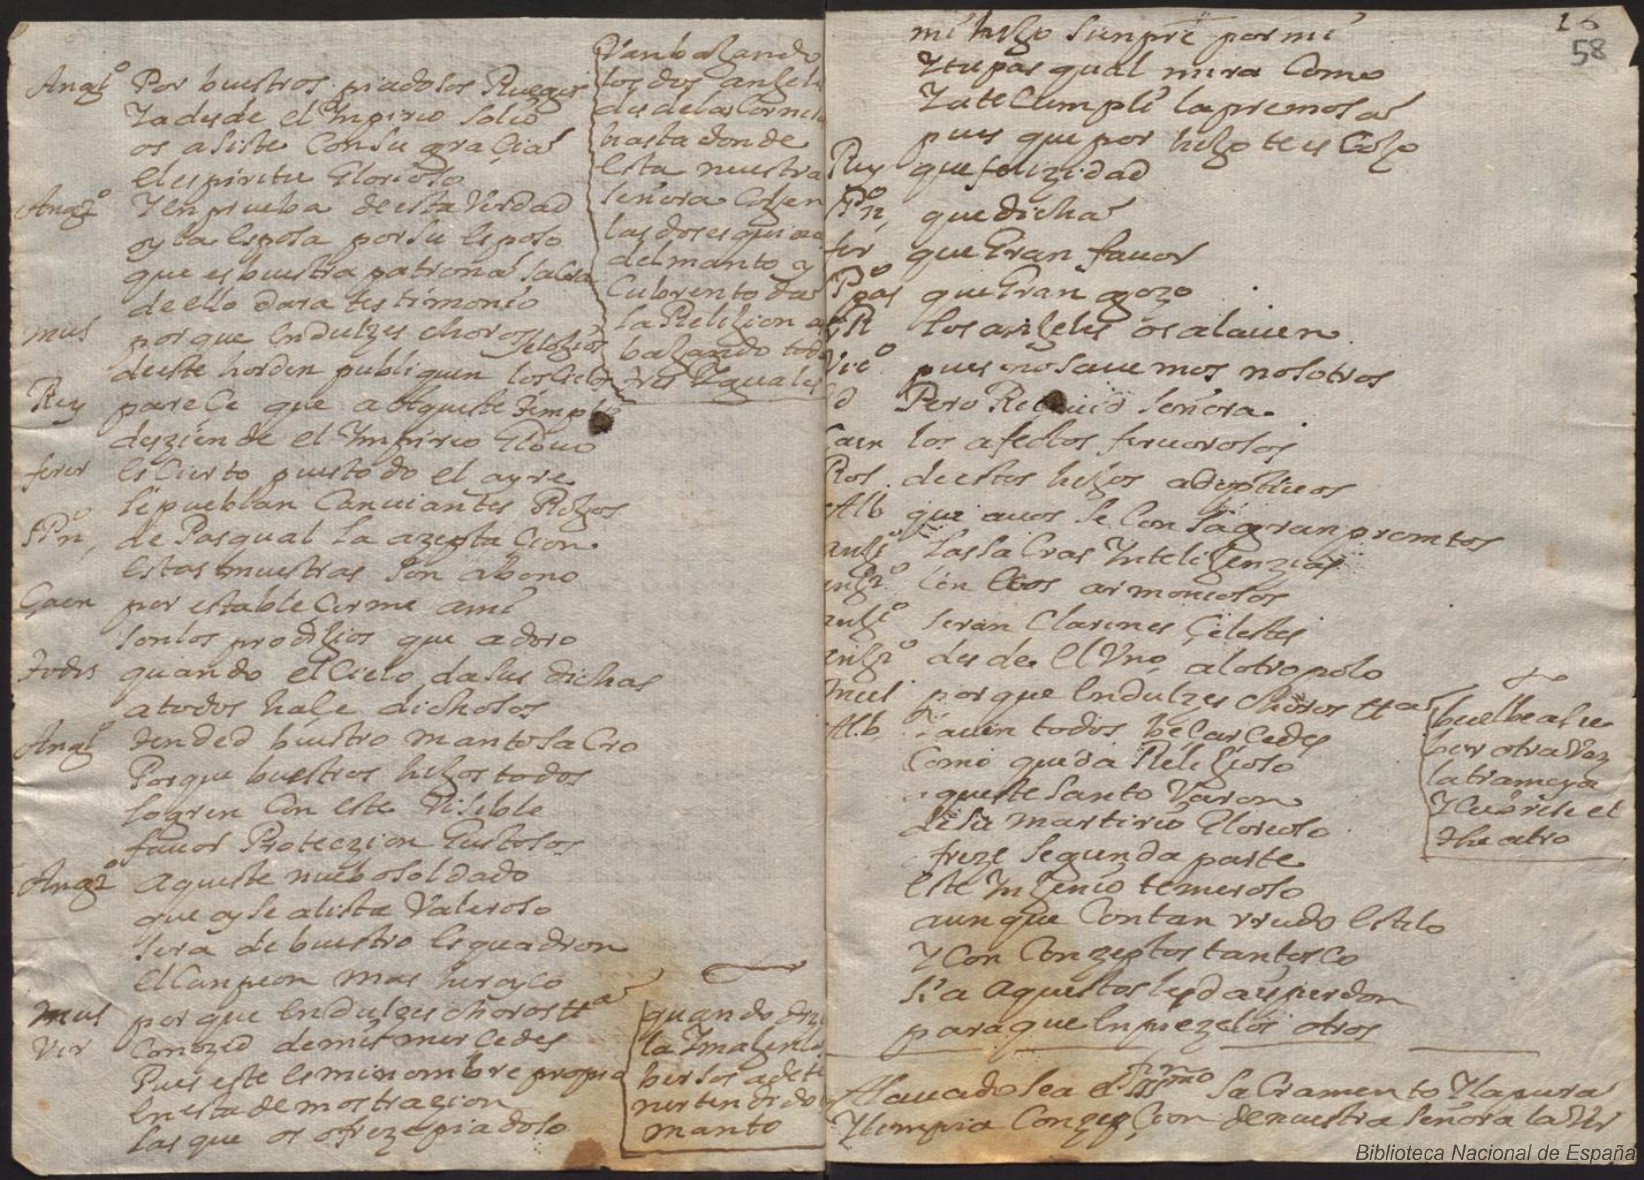 Angl⁰ Por buestros piadosos Ruegos
Ya desde el Ynpirio Solio
os asiste Con Su graçia
el espiritu Glorioso
Ang2⁰ Y en prueba de esta Verdad
oy la Esposa por Su Esposo
que es buestra patrona Sacra
de ello dara testimonio
mus porque En dulzes choros
deeste horden publiquen los Cielos
Rey pareCe que a aqueste templo
desziende el Ympirio Globo
ferer es Cierto puesto do el ayre
Se pueblan Canviantes Rojos
Pⁿ. de Pasqual la azepta Cion
estas muestras Son abono
Gaen por estableCerme ami
Son los prodijios que adoro
todos quando el Cielo da Sus dichas
a todos haçe dichosos
Angl⁰ tended buestro manto SaCro
Porque buestros hijos todos
logren Con este Visible
favor Proteczion Gustosos
Ang2⁰ Aqueste nuebo Soldado
que oy Se alista Valeroso
Sera de buestro Esquadron
el Canpeon mas heroyCo
mus porque En dulzes choros ttª
Vir Conozed de mis merCedes
Pues este es mi nombre propio
en esta demostrazion
las que os ofreze piadoso
Van bajando
los dos anjeles
desde las Cornisas
hasta donde
esta nuestra
Señora Cojen
las dos esquinas
del manto y
Cubren toda
la Relijion
bajando todos
tres Yguales
quando dize
la Ymajen los
bersos a de te
ner tendido
manto
58
mi hijo Sienpre por mi
Y tu pasqual mira Como
Ya te Cumpli la promesa
pues que por hijo te esCojo
Rey que felizidad
Pⁿ. que dicha
fer que Gran favor
Ppas que Gran gozo
los anjeles os alaven
Vic⁰ pues no Savemos nosotros
Pero Señora
Gaen los afectos fervorosos
Ros de estos hijos adoptivos
Alb que a vos Se Consagran promtos
anjl⁰ las SaCras Yntelijenzias
anj2⁰ Con Ecos armoniosos
anjl⁰ Seran Clarines Çelestes
anj2⁰ desde el Uno al otro polo
mus porque En dulzes choros ttª
Alb. todos
Como queda Relijioso
aqueste Santo Varon
de Su martirio Glorioso
freze Segunda parte
este Ynjenio temeroso
aunque Con tan rrudo estilo
Y Con Conzeptos tan tosCo
Si a Aquestos les dais perdon
para que Enpiezelos otros
buelbe a Su
bir otra Vez
la tramoya
Y Cubrese el
theatro
Alavado Sea el SSmo SaCramento Y la pura
Y limpia Conzepçion de nuestra Señora la Vir
Biblioteca Nacional de España